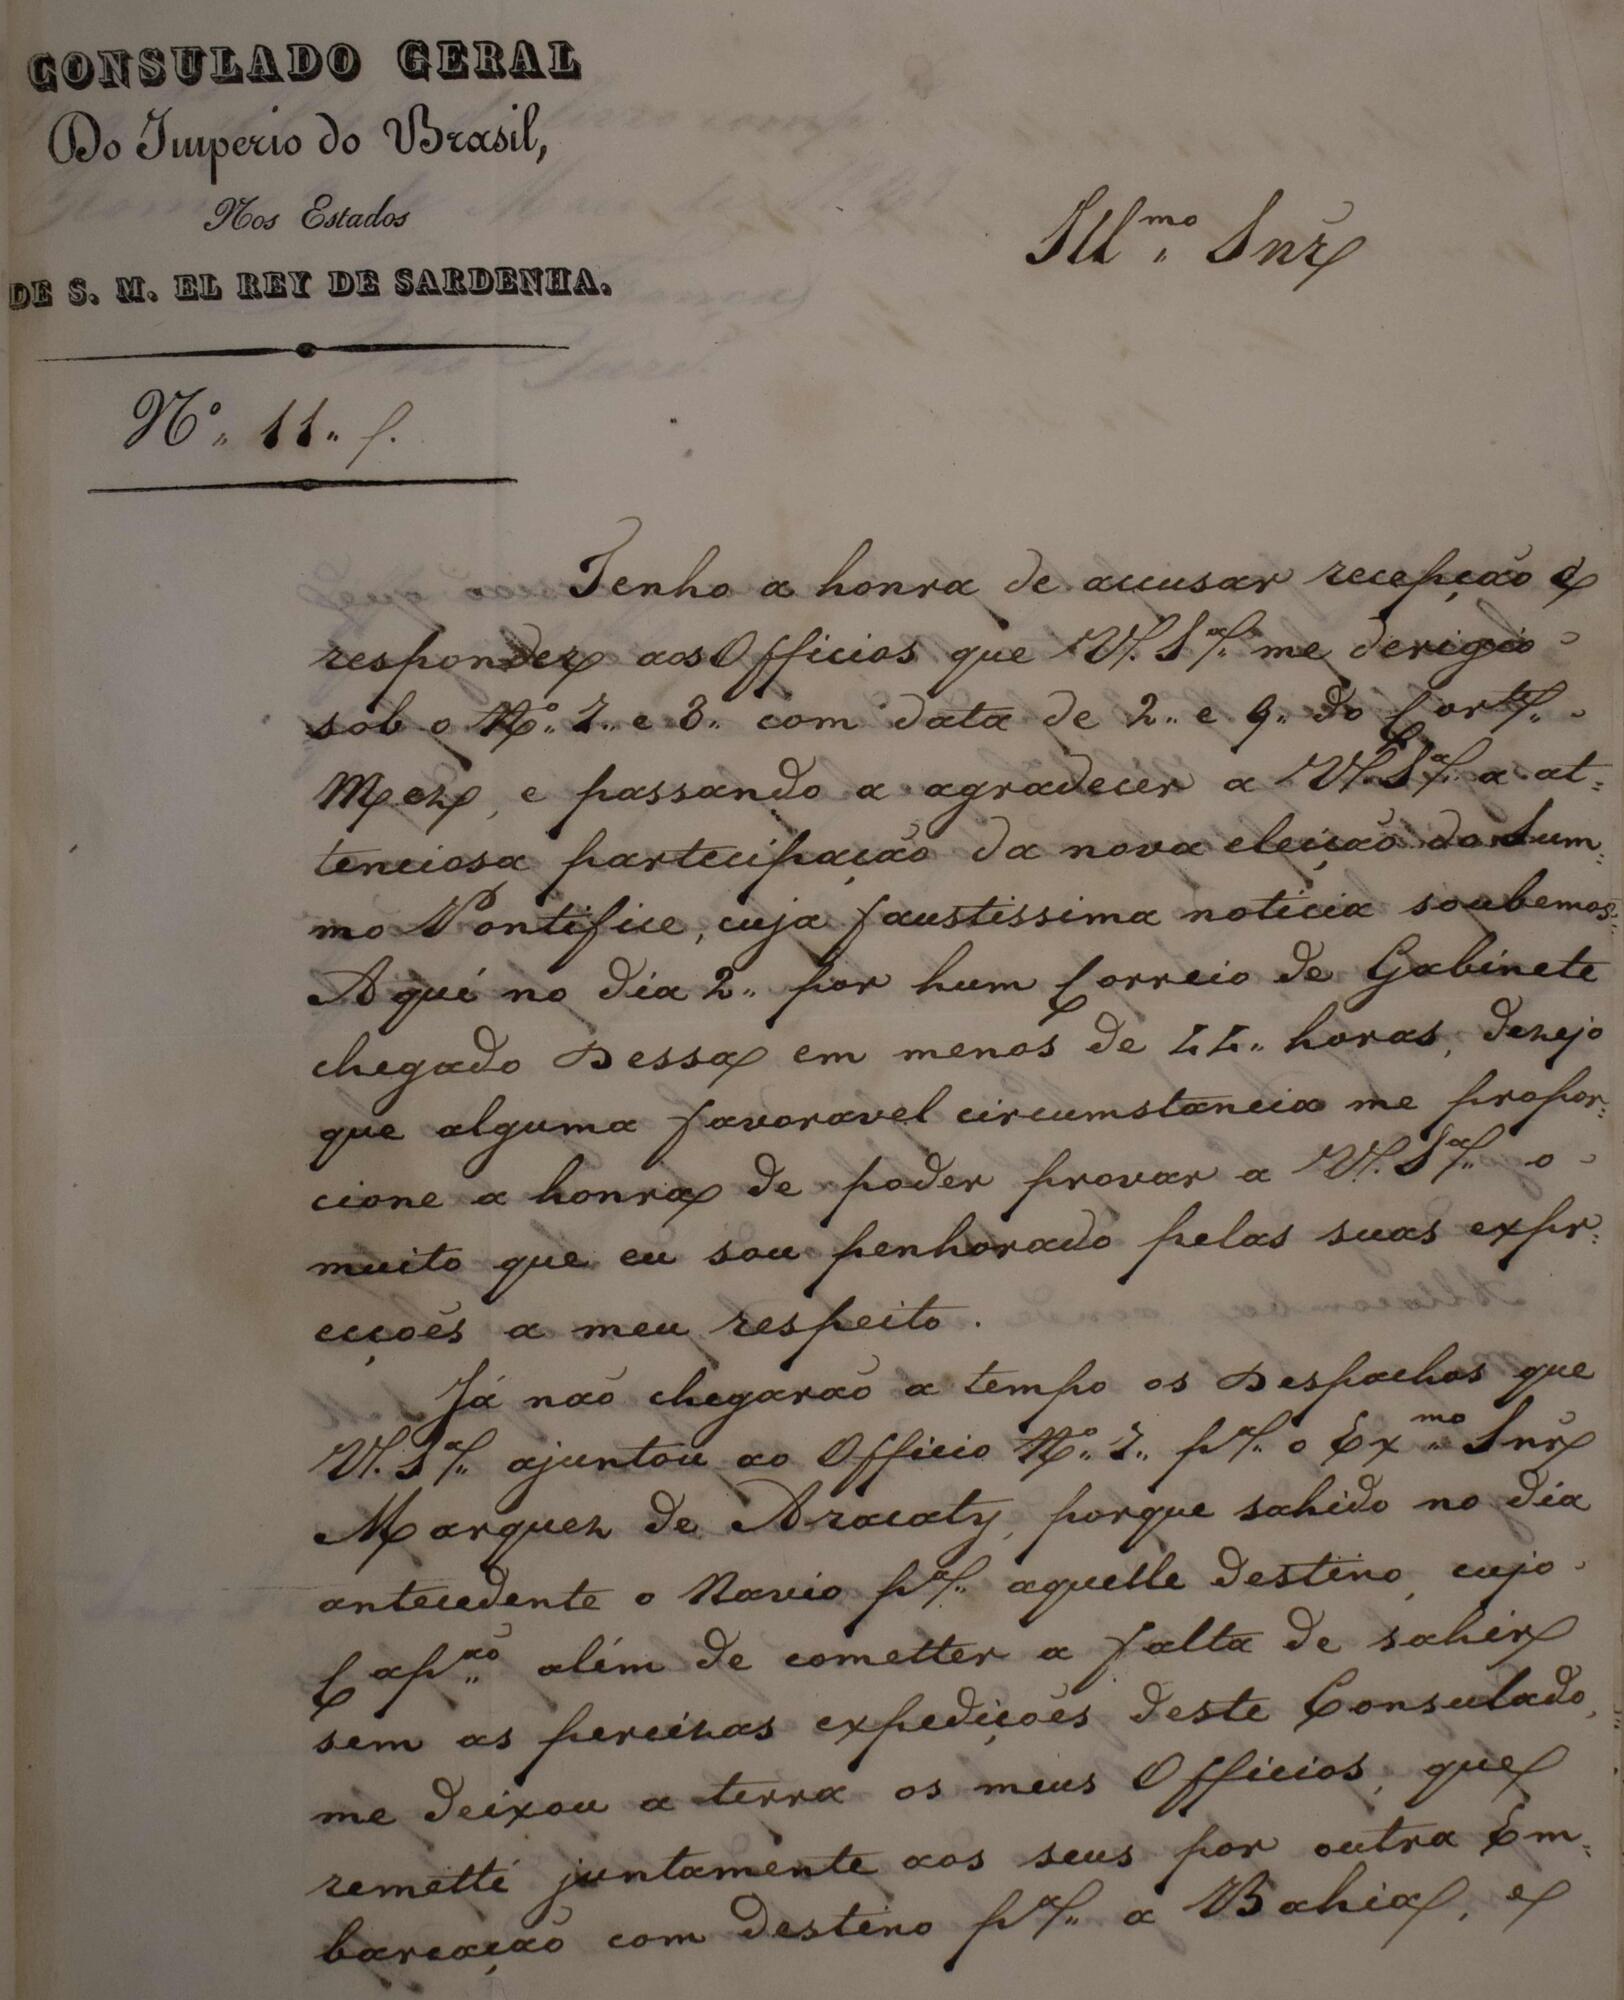 CONSULADO GERAL
Do Imperio do Brasil,
Nos Estados
DE S. M. EL REY DE SARDENHA.
Nº. 11.
Illmo. Snr
Tenho a honra de accusar recepção e
responder aos Officios que V. Sa. me derigio
sob o Nº. 7. e 8. com data de 2. e 9. do Corte.
Mez, e passando a agradecer a V. Sa. a at=
tenciosa partecipação da nova eleição do Sum=
mo Pontifice, cuja faustissima noticia soubemos
Aqui no dia 2. por hum Correio de Gabinete
chegado Dessa em menos de 44. horas, dezejo
que alguma favoravel circumstancia me propor=
cione a honra de poder provar a V. Sa. o
muito que eu sou penhorado pelas suas expr=
ecções a meu respeito.
Já não chegarão a tempo os Despachos que
V. Sa. ajuntou ao Officio Nº. 7. pa. o Exmo. Snr
Marquez de Aracaty, porque sahido no dia
antecedente o Navio pa. aquelle destino, cujo
Capão. além de cometter a falta de sahir
sem as percizas expedições deste Consulado,
me deixou a terra os meus Officios, que
remetti juntamente aos seus por outra Em=
barcação com destino pa. a Bahia, e